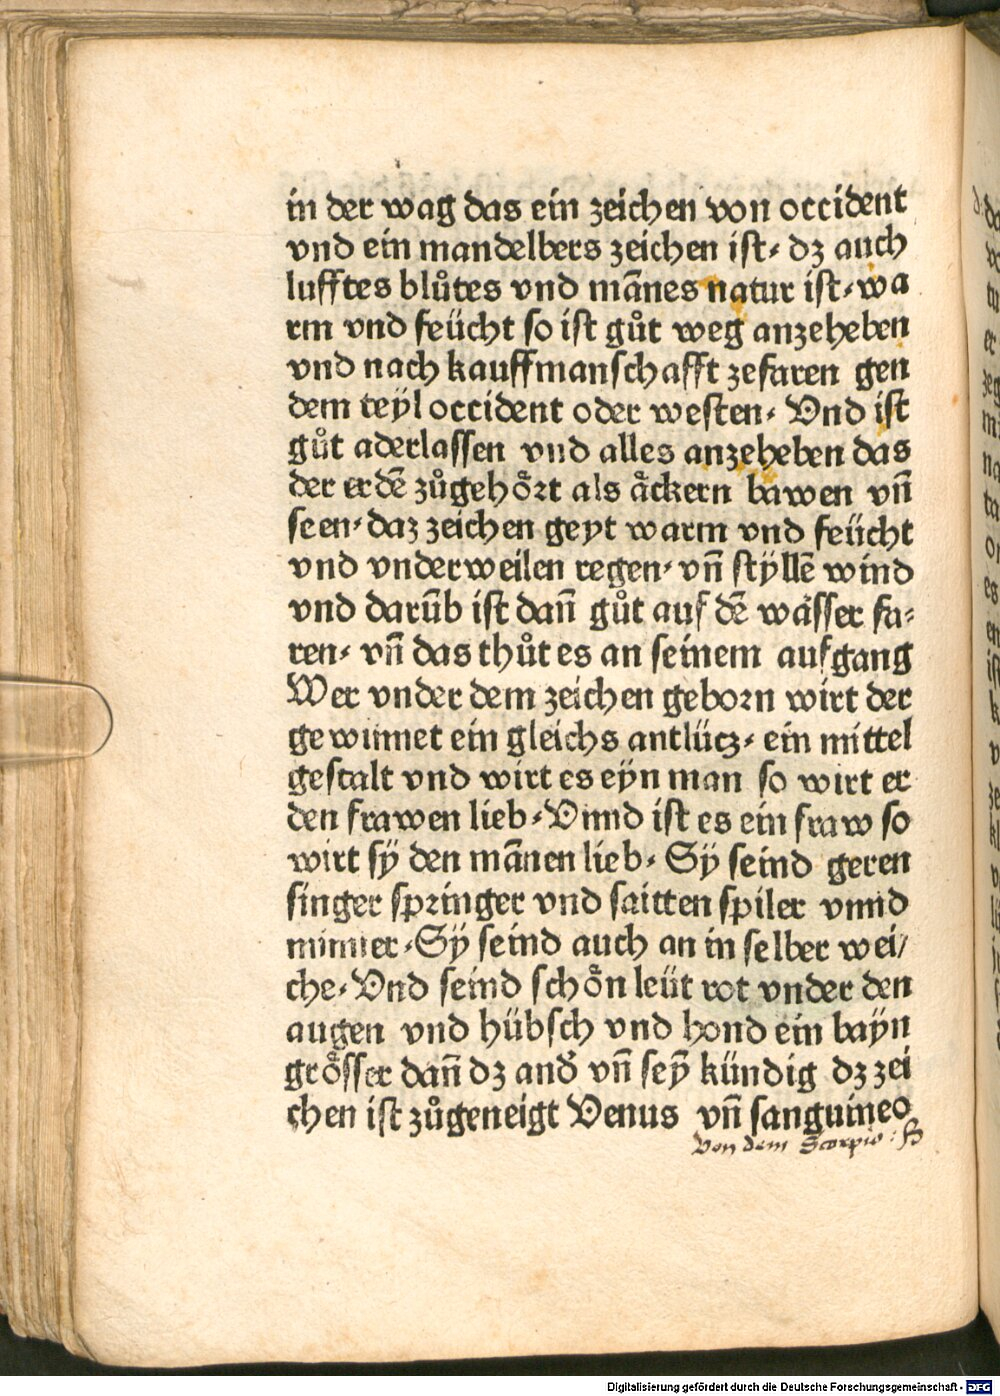 in der wag das ein zeichen von occident
vnd ein mandelbers zeichen ist· dz auch
lufftes blůtes vnd mānes natur ist·wa
rm vnd feücht so ist gůt weg anzeheben
vnd nach kauffmanschafft zefaren gen
dem teyl occident oder westen· Vnd ist
gůt aderlassen vnd alles anzeheben das
der erdē zůgehôrt als âckern bawen vn̄
seen·daz zeichen geyt warm vnd feücht
vnd vnderweilen regen· vn̄ stÿllē wind
vnd darūb ist dan̄ gůt auf dē wâsser fa⸗
ren· vn̄ das thůt es an seinem aufgang
Wer vnder dem zeichen geborn wirt der
gewinnet ein gleichs antlücz· ein mittel
gestalt vnd wirt es eÿn man so wirt er
den frawen lieb·Vnnd ist es ein fraw so
wirt sÿ den mānen lieb· Sÿ seind geren
singer springer vnd saitten spiler vnnd
minner·Sÿ seind auch an in selber wei/
che·Vnd seind schôn leüt rot vnder den
augen vnd hübsch vnd hond ein baÿn
grôsser dan̄ dz and̛ vn̄ seȳ kündig dz zei
chen ist zůgeneigt Venus vn̄ sanguineo
Von dem Scorpio :
Digitalisierung gefördert durch die Deutsche Forschungsgemeinschaft - DFG